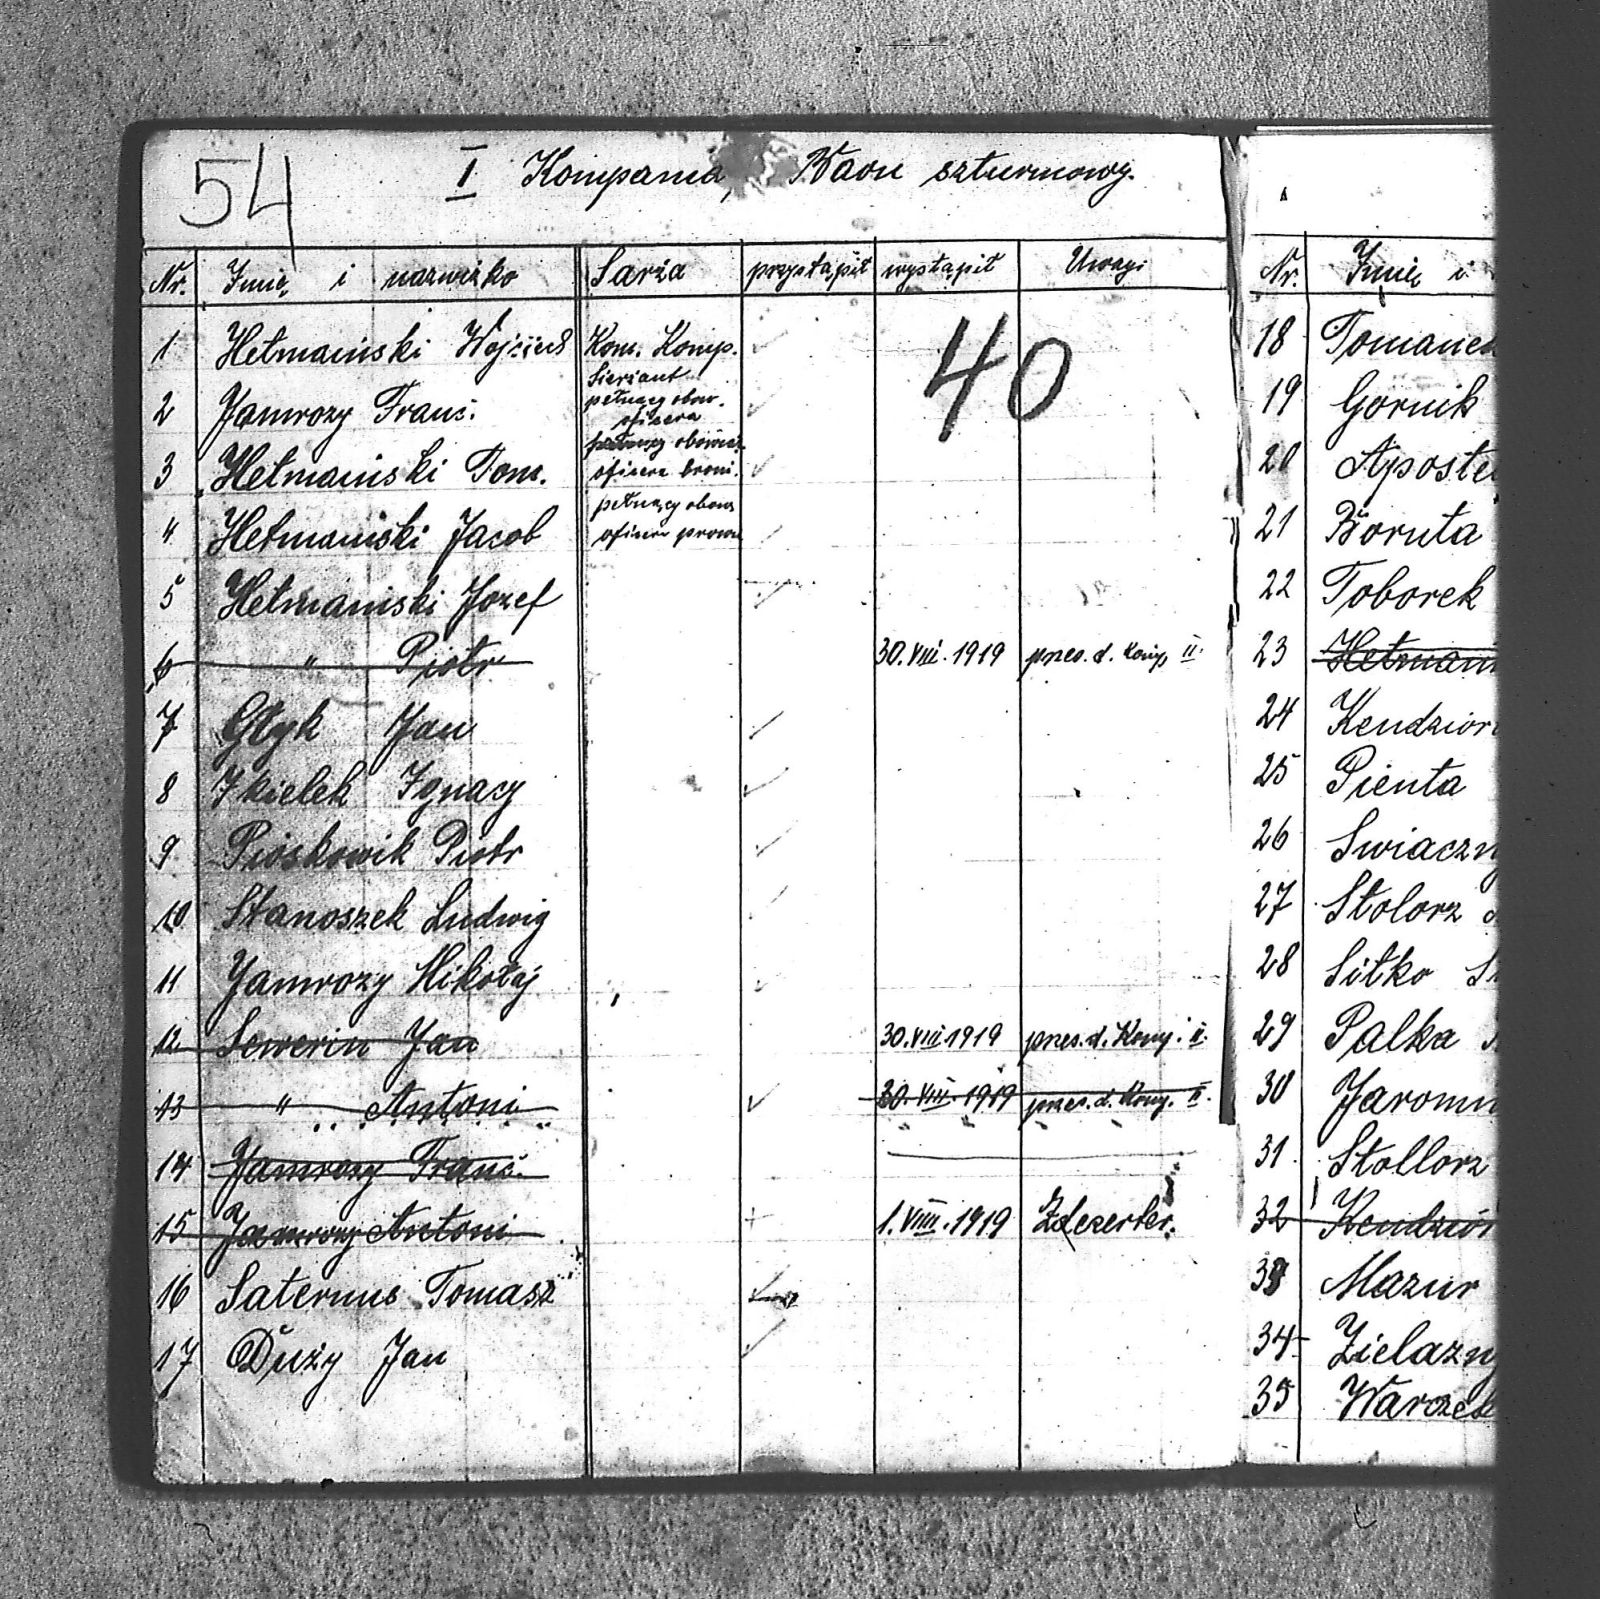 54
I Kompania, Baon szturmowy.
Nr. Imię i nazwisko Sarża przystąpił wystąpił Uwagi
40
1 Hetmański Wojciech Kom. Komp.
Sierżant
2 Jamrozy Franc. pełnący obow.
oficera
3 Hetmański Tom. pełnący obowią.
oficera broni.
4 Hetmański Jacob pełnący obow
oficera prow
5 Hetmański Jozef
6 " Piotr 30.VIII.1919 przes. d. Komp II.
7 Głyk Jan
8 Ikielek Ignacy
9 Pioskowik Piotr
10 Stanoszek Ludwig
11 Jamrozy Mikołaj
12 Sewerin Jan 30.VIII 1919 przes. d. Komp. II.
13 " Antoni 30.VIII.1919 przes. d. Komp. II.
14 Jamrozy Franc.
15 Jamrozy Antoni 1.VIII.1919 Zdezerter.
16 Saternus Tomasz
17 Duży Jan
Nr. Imię i
18 Tomanek
19 Gornik
20 Aposte
21 Boruta
22 Toborek
23 Hetmani
24 Kendzior
25 Pienta
26 Swiaczny
27 Stolorz
28 Sitko
29 Palka
30 Jaromi
31 Stollorz
32 Kendzior
33 Mazur
34 Zielazny
35 Warzek